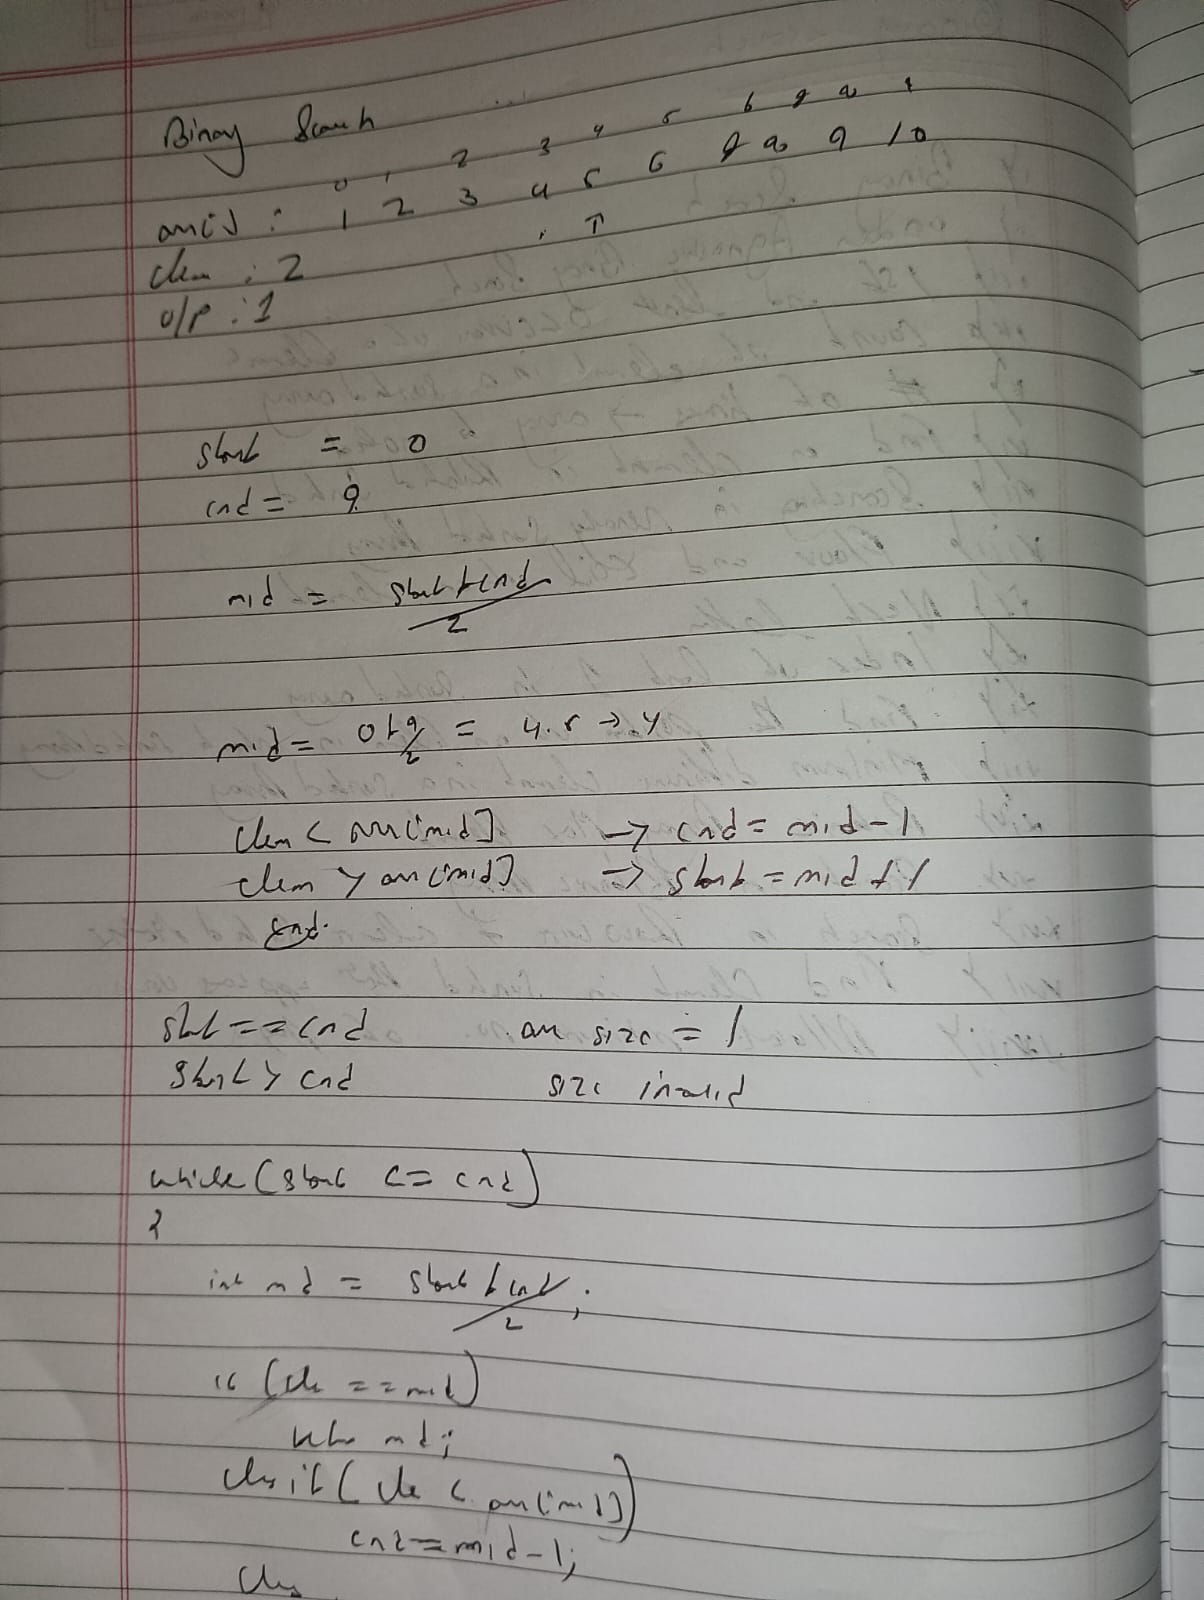 Binary Search
0 1 2 3 4 5 6 7 8 9
arr[] : 1 2 3 4 5 6 7 8 9 10
↑
elem : 2
o/p : 1
start = 0
end = 9
mid = start + end / 2
mid = 0+9/2 = 4.5 → 4
elem < arr[mid] → end = mid - 1
elem > arr[mid] → start = mid + 1
end.
start == end arr size = 1
start > end size invalid
while (start <= end)
{
int mid = start + end / 2 ;
if (ele == mid)
return mid;
else if (ele < arr[mid])
end = mid - 1;
else